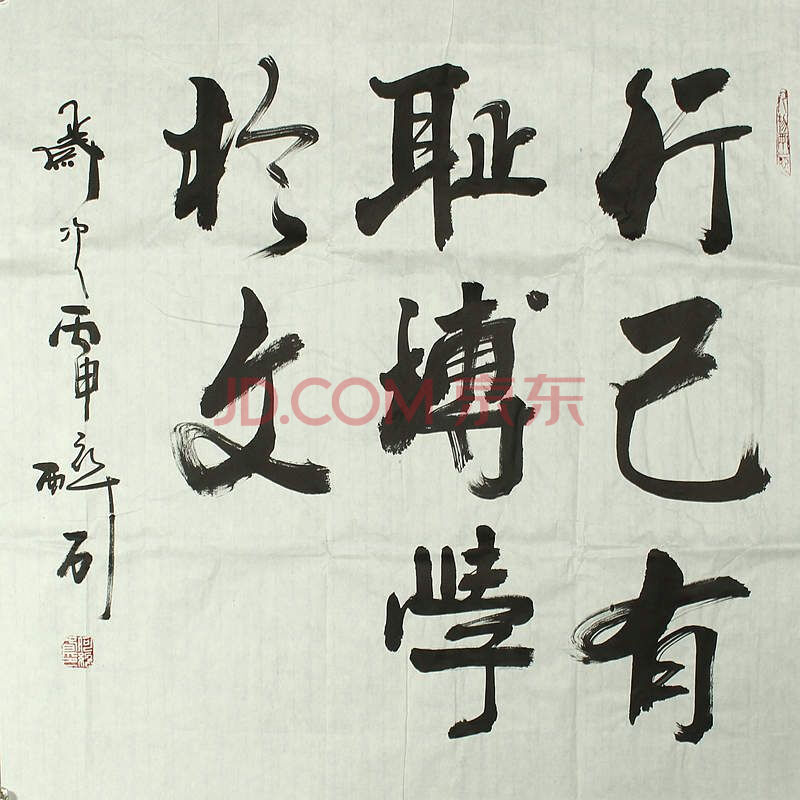 行己有
耻博学
於文
丙申
JD.COM 京东